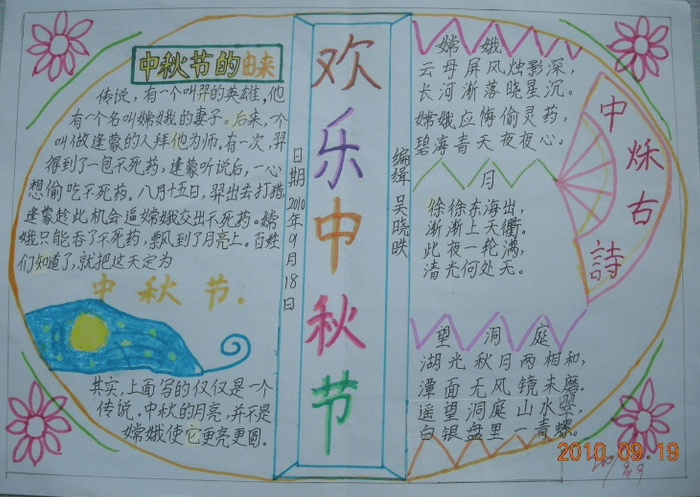 中秋节的由来
传说,有一个叫羿的英雄,他
有一个名叫嫦娥的妻子。后来,一个
叫做逢蒙的人拜他为师。有一次,羿
得到了一包不死药,逢蒙听说后,一心
想偷吃不死药。八月十五日,羿出去打猎,
逢蒙趁此机会逼嫦娥交出不死药。嫦
娥只能吞了不死药,飘风到了月亮上。百姓
们知道了,就把这天定为
中秋节.
其实,上面写的仅仅是一个
传说。中秋的月亮,并不是
嫦娥使它更亮更圆。
日期2010年9月18日
欢乐中秋节
编缉 吴晓
嫦娥
云母屏风烛影深,
长河渐落晓星沉。
嫦娥应悔偷灵药,
碧海青天夜夜心。
月
徐徐东海出,
渐渐上天衢。
此夜一轮满,
清光何处无。
望洞庭
湖光秋月两相和,
潭面无风镜未磨,
遥望洞庭山水翠,
白银盘里一青螺。
中秋古詩
2010.09.19